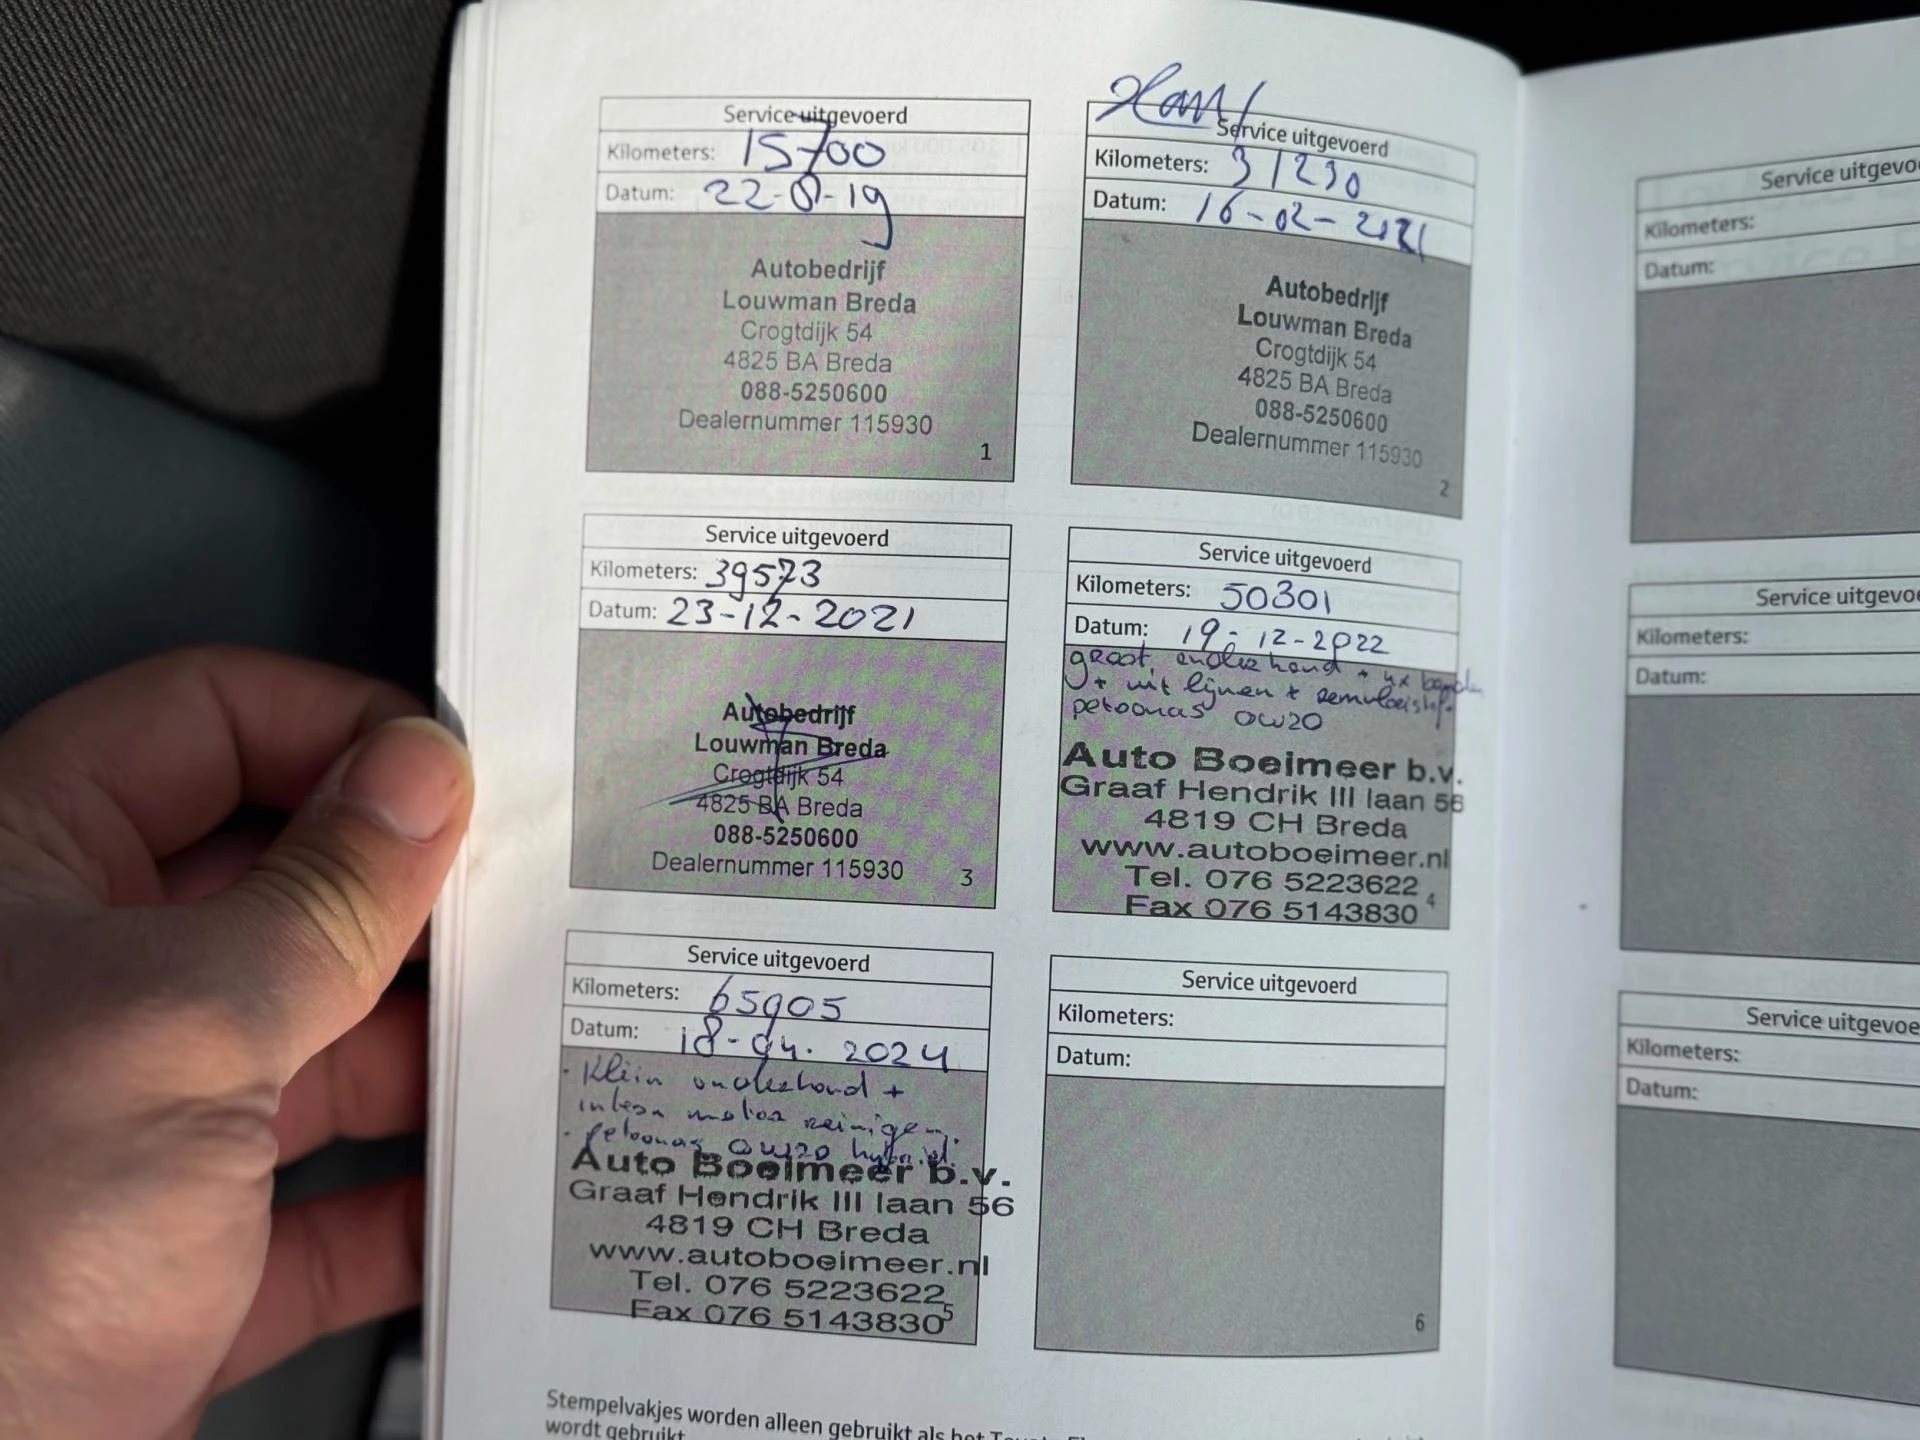 Service uitgevoerd
Kilometers: 15700
Datum: 22-8-19
Autobedrijf
Louwman Breda
Crogtdijk 54
4825 BA Breda
088-5250600
Dealernummer 115930
1
Service uitgevoerd
Kilometers: 31230
Datum: 16-02-2021
Autobedrijf
Louwman Breda
Crogtdijk 54
4825 BA Breda
088-5250600
Dealernummer 115930
2
Service uitgevoerd
Kilometers: 39573
Datum: 23-12-2021
Autobedrijf
Louwman Breda
Crogtdijk 54
4825 BA Breda
088-5250600
Dealernummer 115930
3
Service uitgevoerd
Kilometers: 50301
Datum: 19-12-2022
groot onderhoud + 4x banden
+ uit lijnen + remvloeistof.
petoonas 0W20
Auto Boeimeer b.v.
Graaf Hendrik III laan 56
4819 CH Breda
www.autoboeimeer.nl
Tel. 076 5223622
Fax 076 5143830
4
Service uitgevoerd
Kilometers: 65905
Datum: 18-04-2024
· Klein onderhoud +
intern motor reinigen.
· petoonas 0W20 hybrid.
Auto Boeimeer b.v.
Graaf Hendrik III laan 56
4819 CH Breda
www.autoboeimeer.nl
Tel. 076 5223622
Fax 076 5143830
5
Service uitgevoerd
Kilometers:
Datum:
6
Stempelvakjes worden alleen gebruikt als het
wordt gebruikt
Service uitgevoe
Kilometers:
Datum:
Service uitgevoe
Kilometers:
Datum:
Service uitgevoe
Kilometers:
Datum: